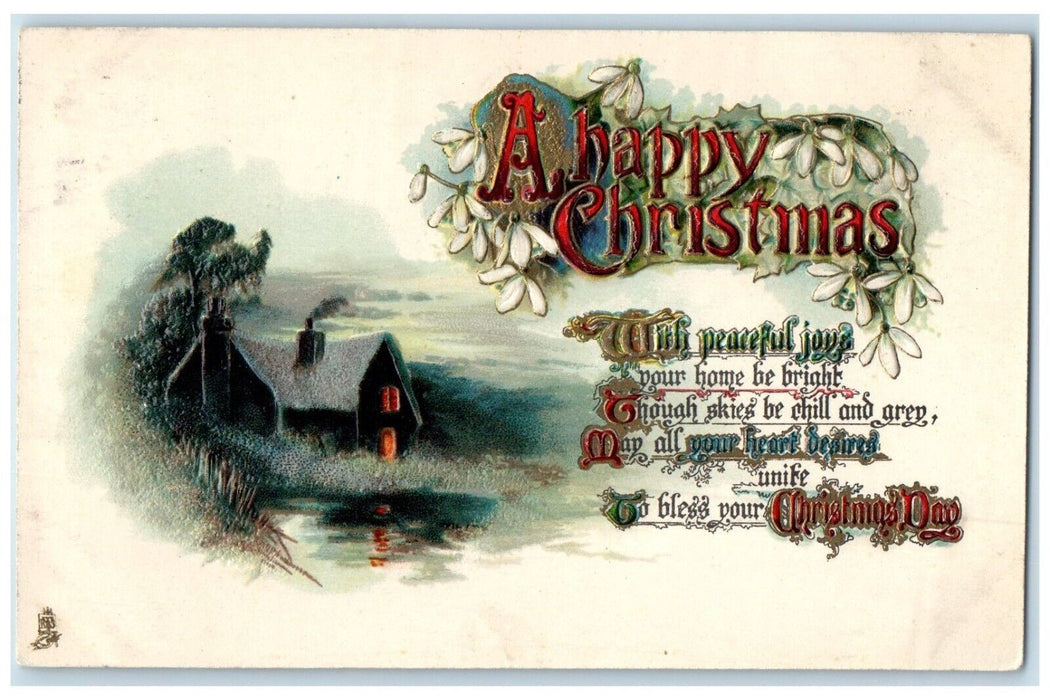 A happy
Christmas
With peaceful joys
your home be bright
Though skies be chill and grey,
May all your heart desires
unite
To bless your Christmas Day